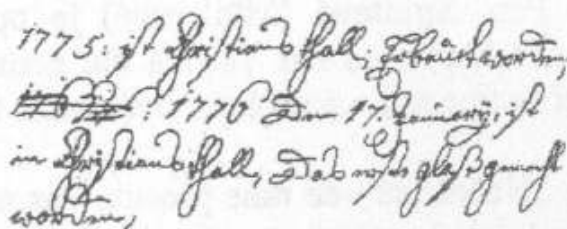 1775: ist Christians thall, Erbaut worden,
: 1776 Den 17. Januarÿ: ist
in Christians thall, Das erste glaß gemacht
worden,